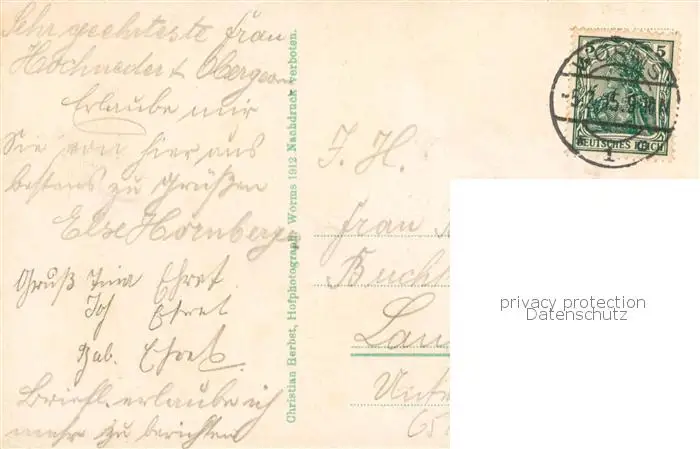 Sehr geehrteste Frau
Hochnedert Obergeom
Erlaube mir
Sie von hier aus
bestens zu grüßen
Else Hornberger
Gruß Tina Ehret
Joh Ehret
Bab. Ehret.
Briefl. erlaube ich
mehr zu berichten
Christian Herbst, Hofphotograph, Worms 1912 Nachdruck verboten.
5
WORMS
1
DEUTSCHES REICH
I. H.
Frau
Buch
Lan
Unte
65
privacy protection
Datenschutz